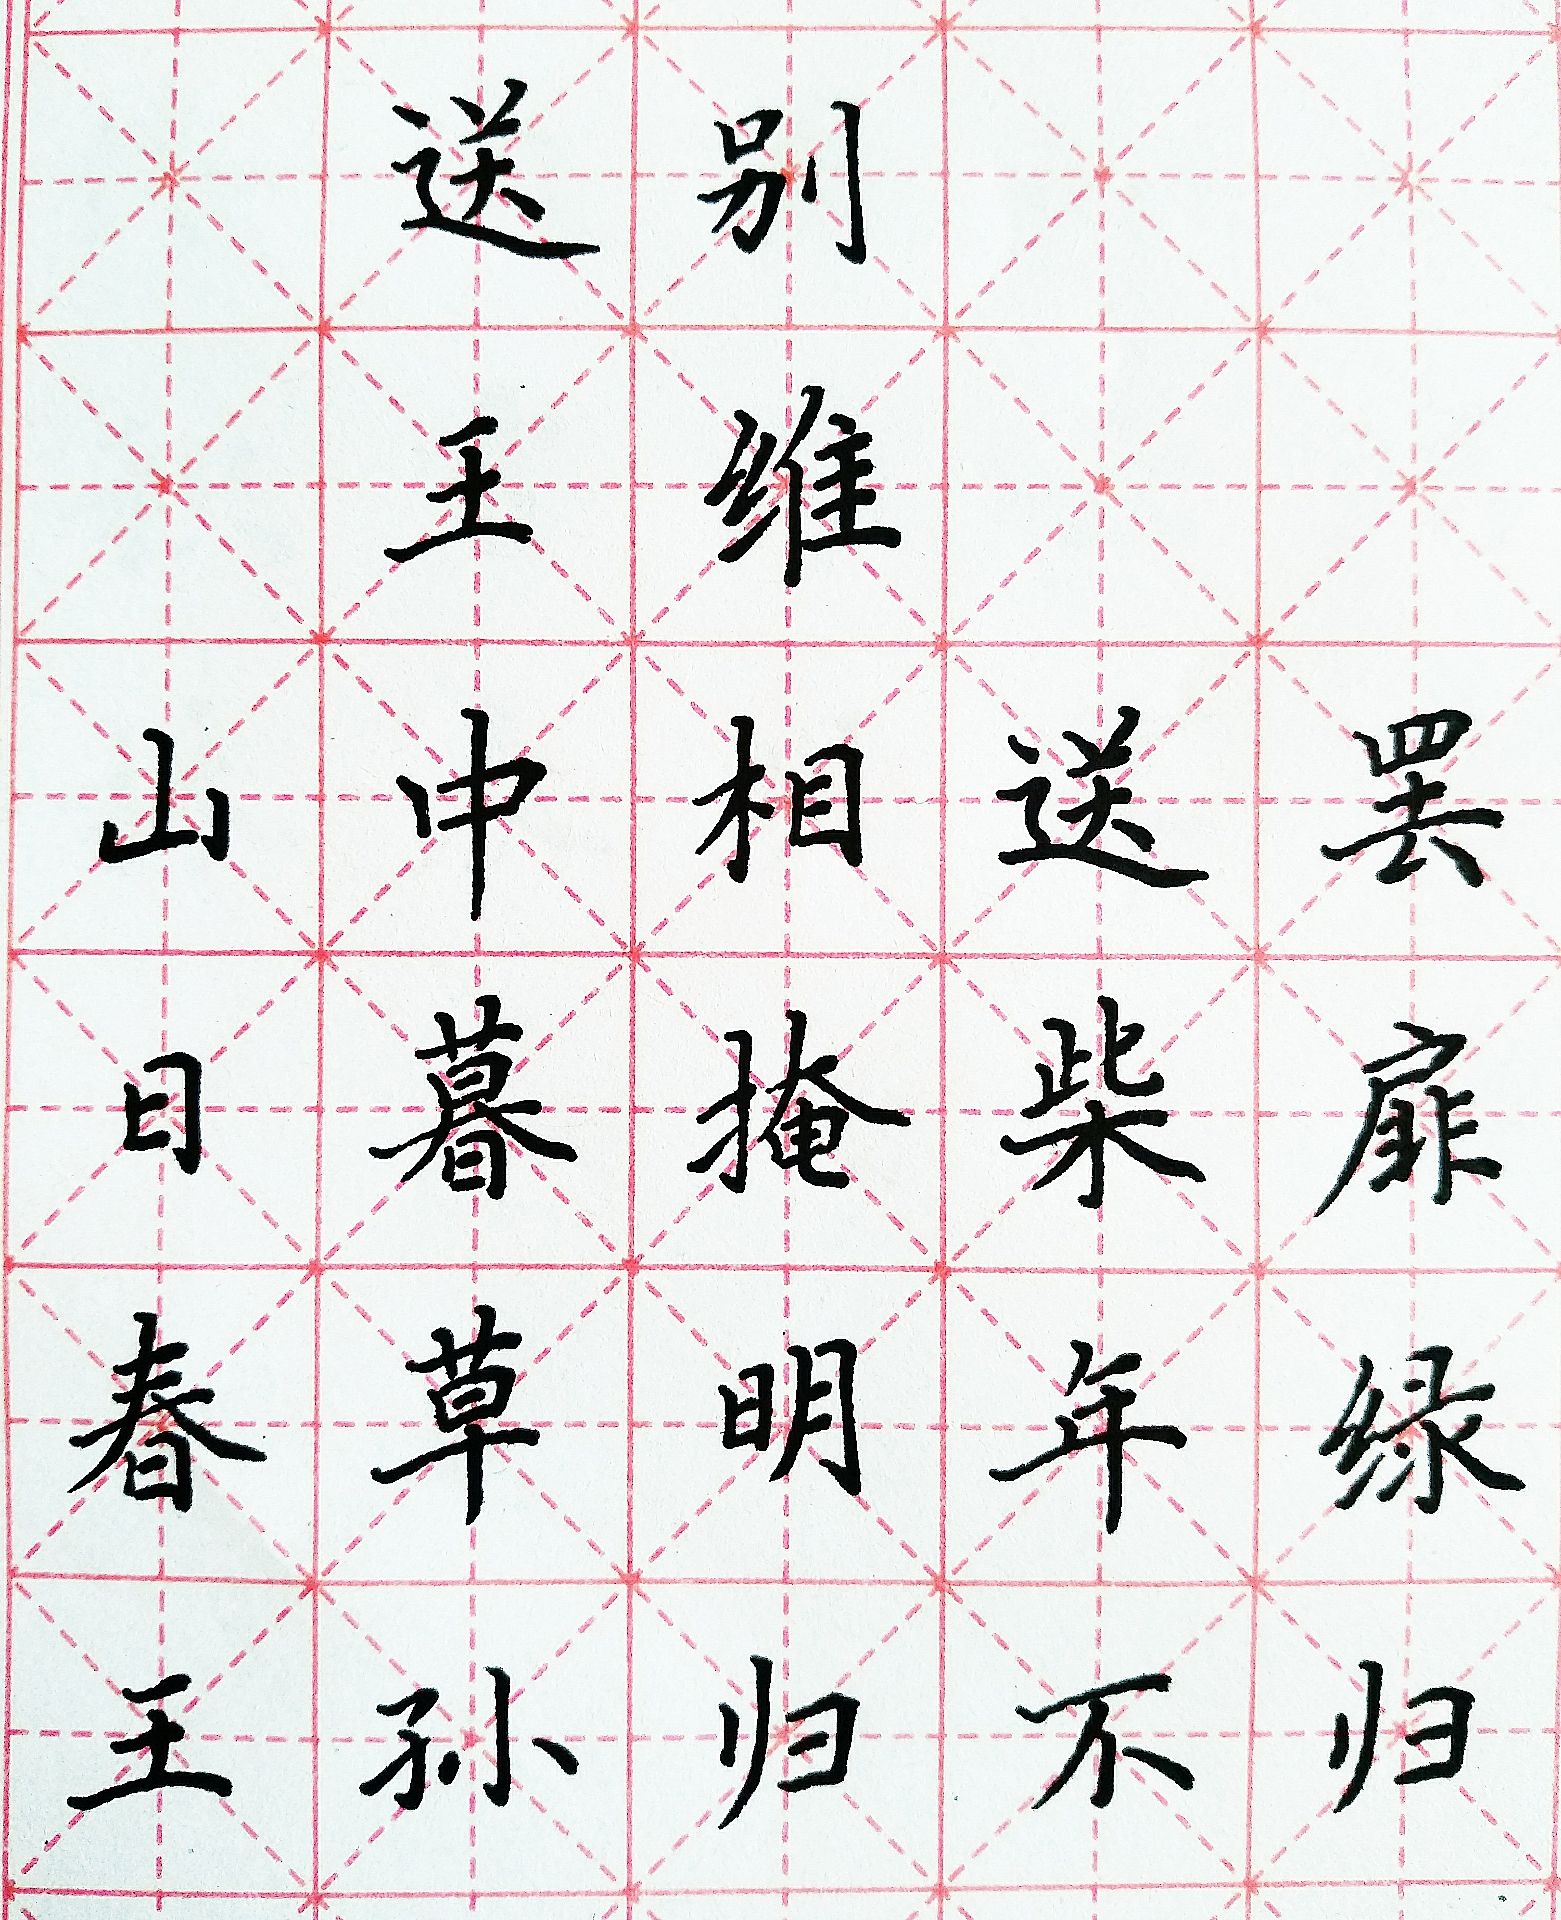 送别
王维
山中相送罢
日暮掩柴扉
春草明年绿
王孙归不归